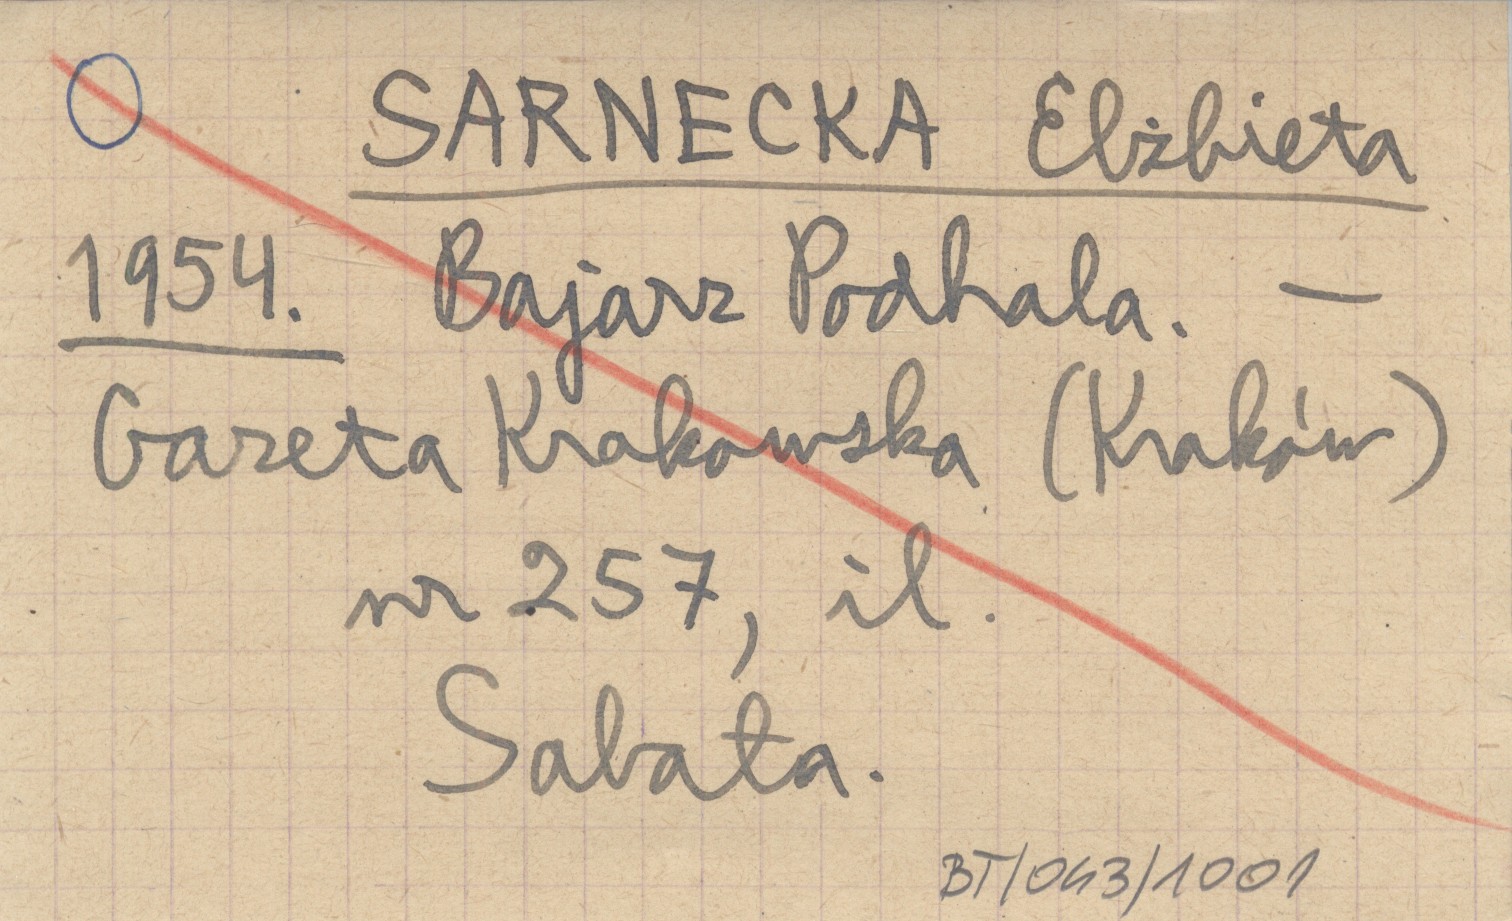 SARNECKA Elżbieta
1954. Bajarz Podhala. —
Gazeta Krakowska (Kraków)
nr 257, il.
Sabała.
BT/043/1001